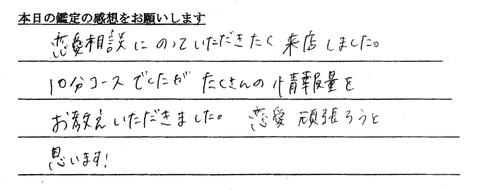 本日の鑑定の感想をお願いします
恋愛相談にのっていただきたく来店しました。
10分コースでしたがたくさんの情報量を
お教えいただきました。恋愛頑張ろうと
思います!